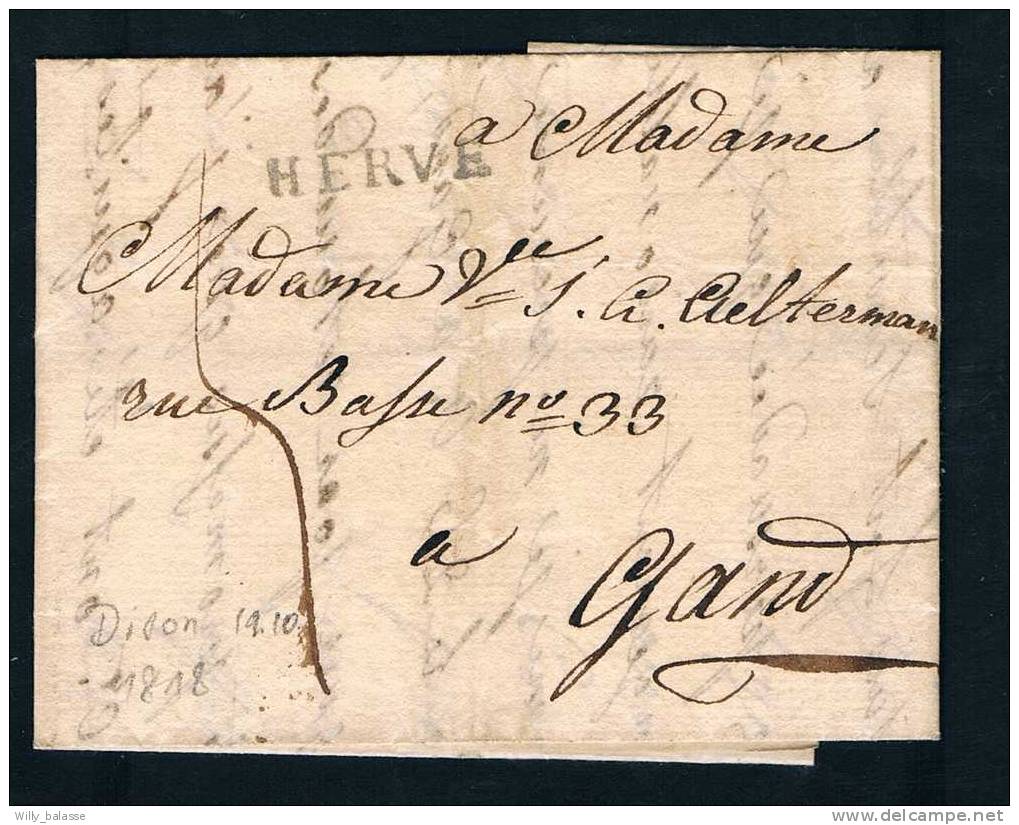 a Madame
HERVE
Madame Vᵉᵉ J. C. Aelterman
rue Basse nº 33
a
Gand
Dison 19.10
1818
Willy_balasse
delcampe.net